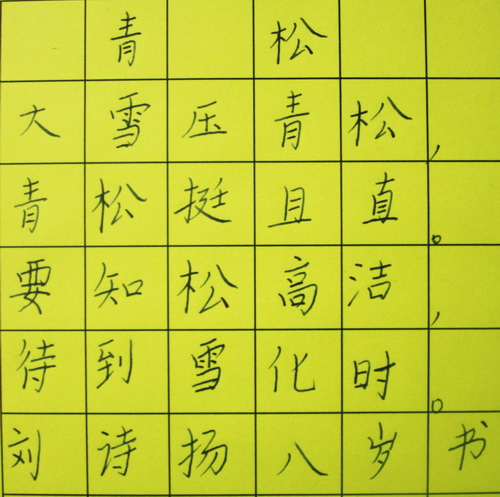 青松
大雪压青松，
青松挺且直。
要知松高洁，
待到雪化时。
刘诗扬八岁书